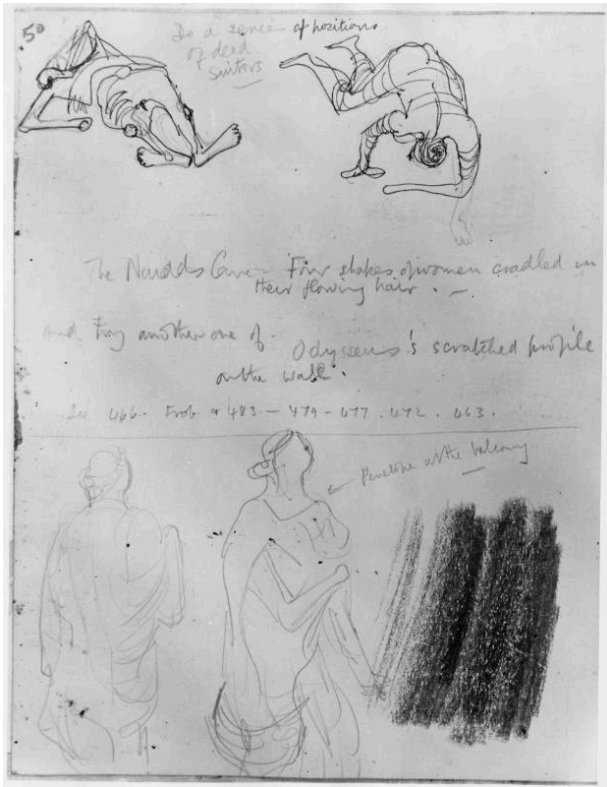 50
Do a series of positions
of dead
suitors
The Naiads Cave - Four shapes of women cradled in
their flowing hair. -
and Try another one of Odysseus's scratched profile
on the wall.
See 466. 483 - 479 - 477. 472. 463.
← Penelope at the balcony